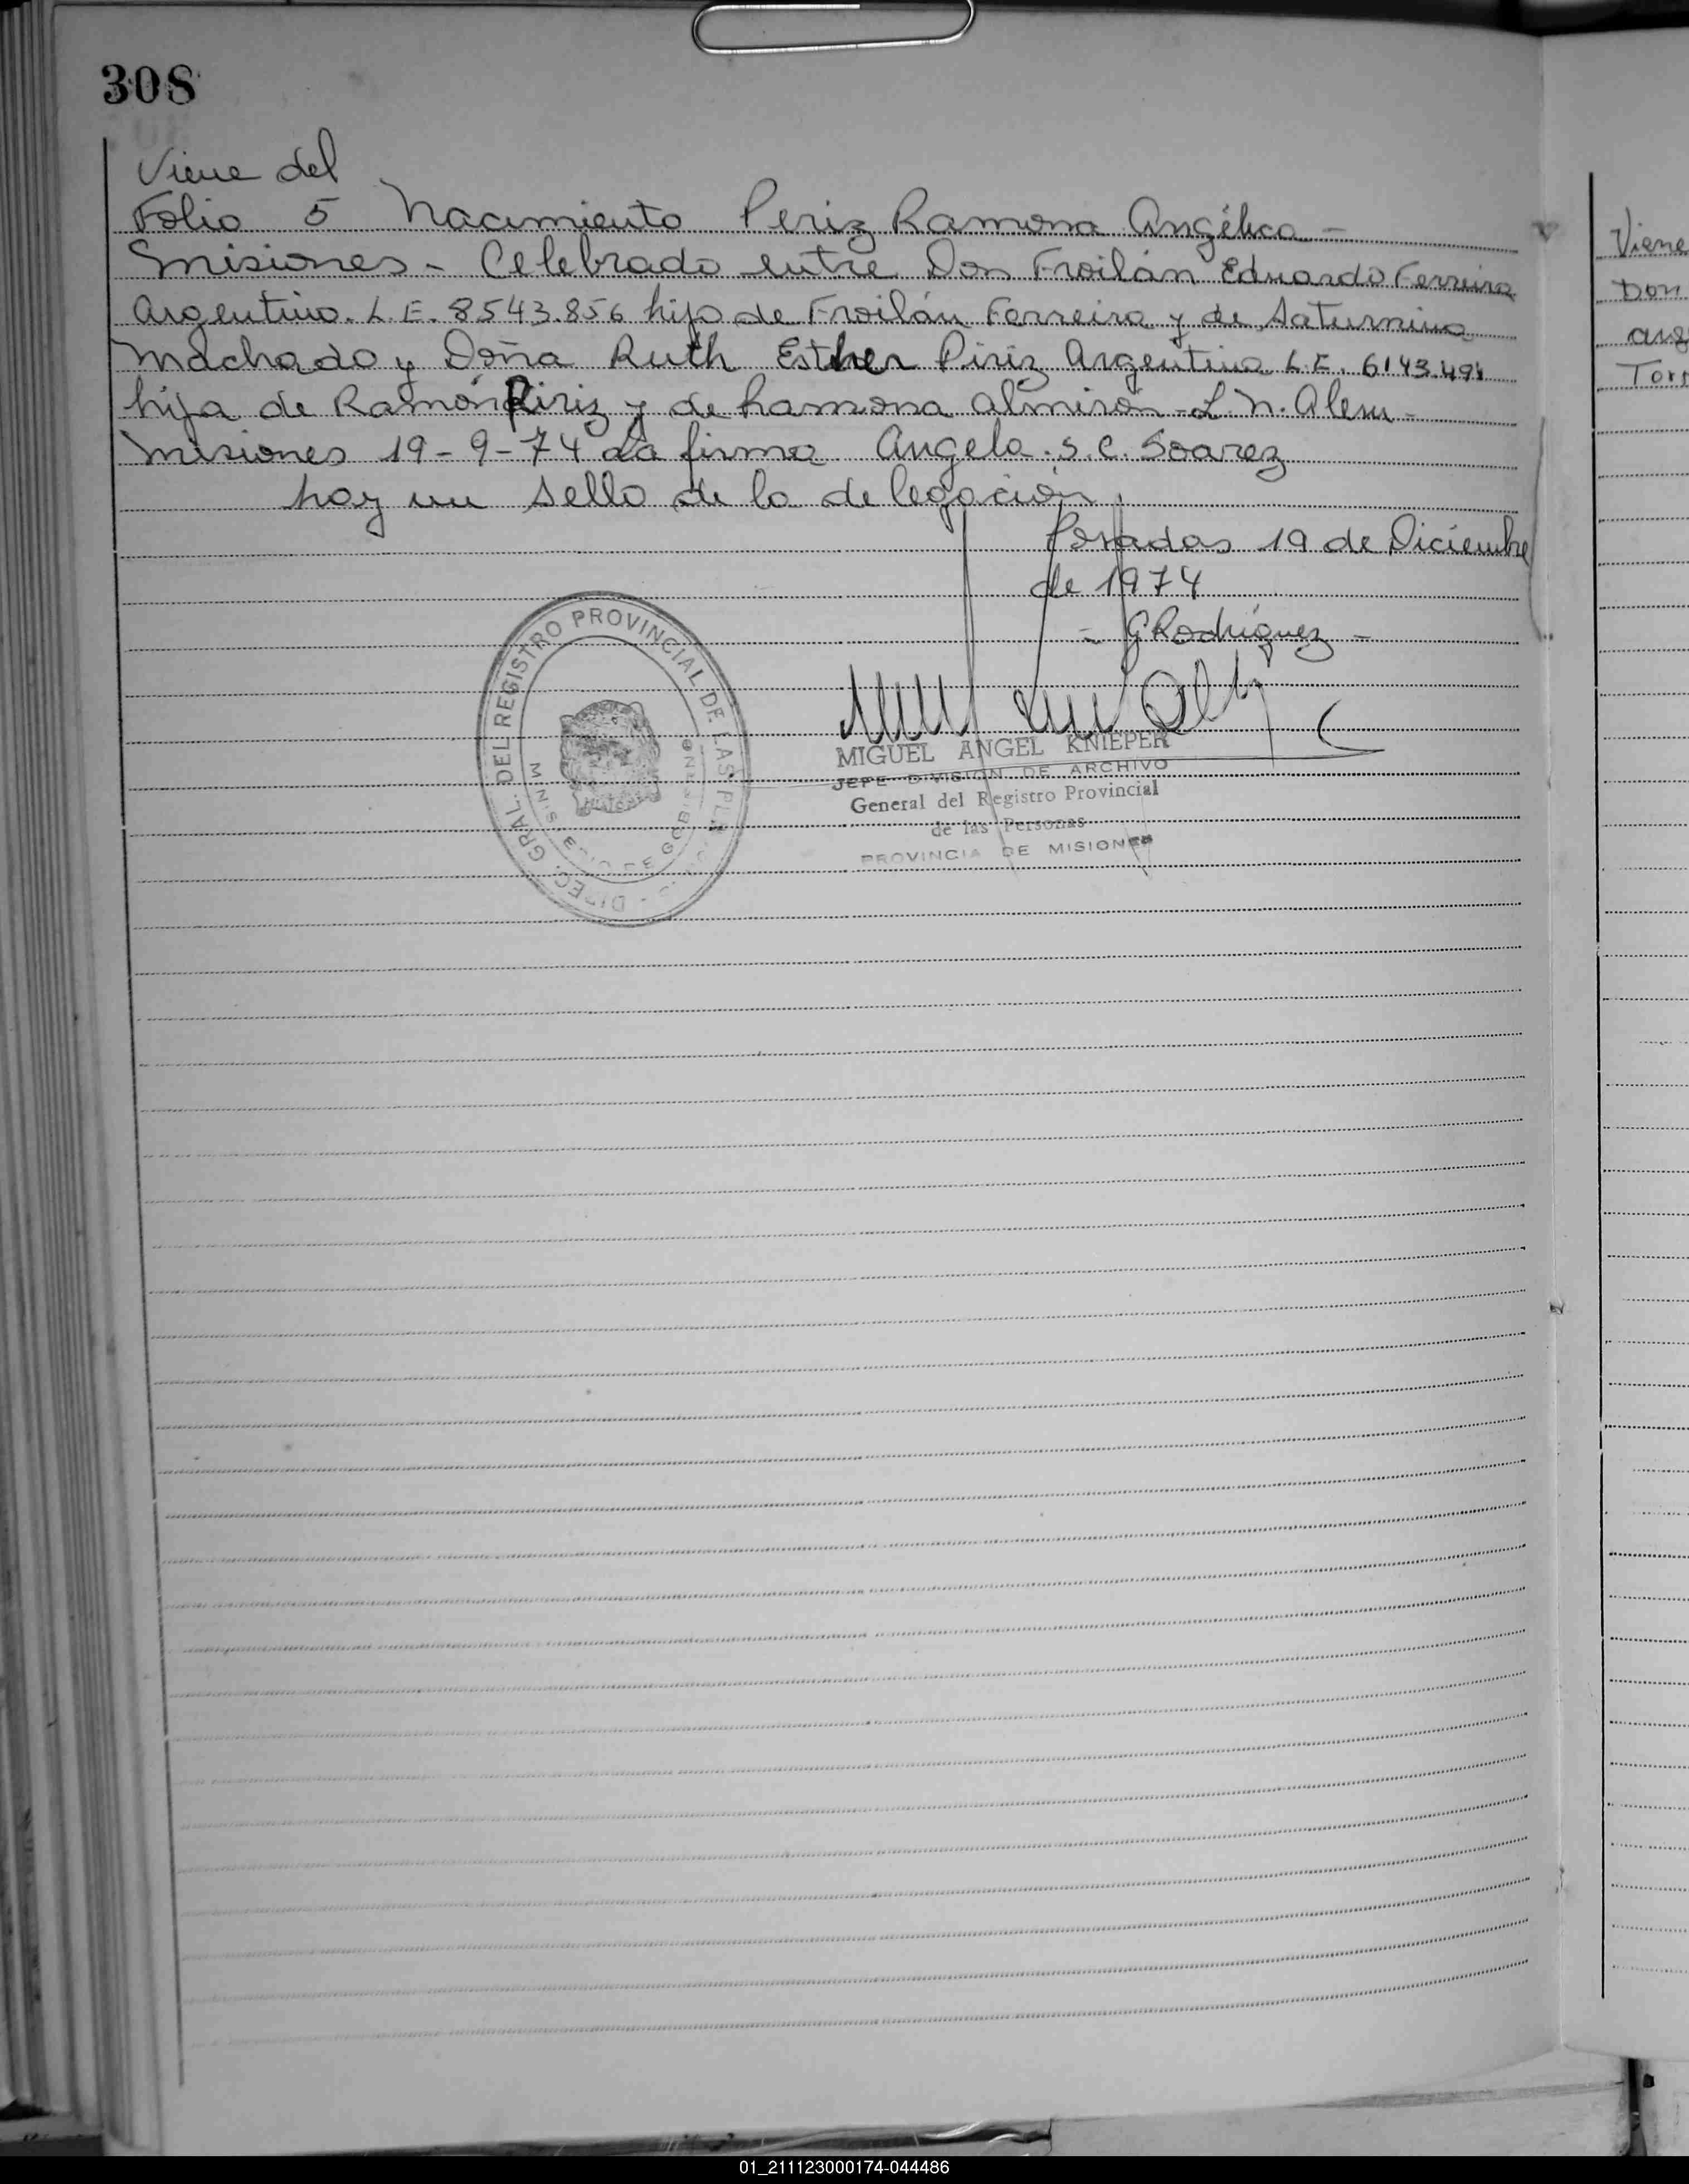 308
Viene del
Folio 5 Nacimiento Periz Ramona Angélica -
Misiones - Celebrado entre Don Froilán Eduardo Ferreira
Argentino. L.E. 8543.856 hijo de Froilán Ferreira y de Saturnina
Machado y Doña Ruth Esther Piriz Argentina L.E. 6143.491
hija de Ramón Piriz y de Ramona Almirón - L.N. Alem -
Misiones 19-9-74 La firma Angela. S. C. Soarez
hay un sello de la delegación.
Posadas 19 de Diciembre
de 1974
- GRodríguez -
DIREC. GRAL. DEL REGISTRO PROVINCIAL DE LAS
DE GOBIERNO
MIGUEL ANGEL KNIEPER
JEFE DIVISION DE ARCHIVO
General del Registro Provincial
de las Personas
PROVINCIA DE MISIONES
Viene
Don
Torr
01_211123000174-044486